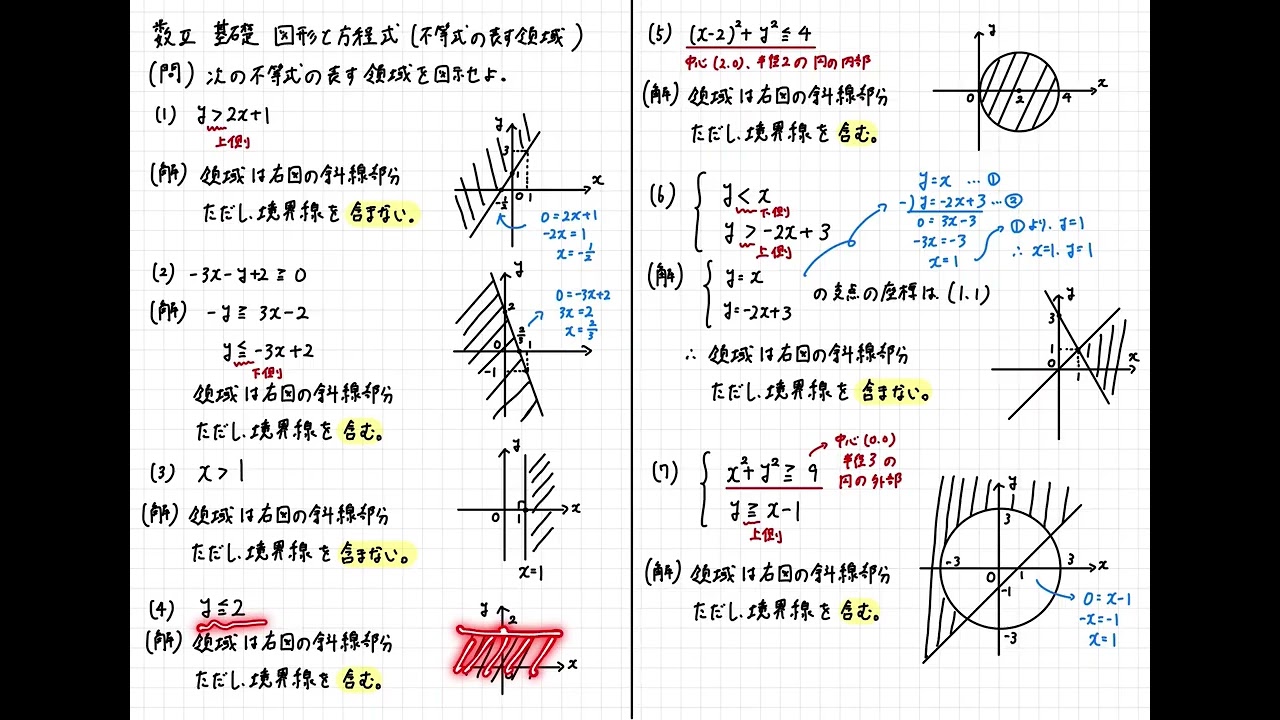 数Ⅱ 基礎 図形と方程式 (不等式の表す領域)
(問) 次の不等式の表す領域を図示せよ.
(1) y > 2x+1
上側
(解) 領域は右図の斜線部分
ただし、境界線を含まない。
y
3
1
x
0 1
-1/2
0=2x+1
-2x=1
x=-1/2
(2) -3x-y+2≧0
(解) -y≧3x-2
y≦-3x+2
下側
領域は右図の斜線部分
ただし、境界線を含む。
y
2
2/3
0 1
-1
0=-3x+2
3x=2
x=2/3
(3) x>1
(解) 領域は右図の斜線部分
ただし、境界線を含まない。
y
0 1 x
x=1
(4) y≦2
(解) 領域は右図の斜線部分
ただし、境界線を含む。
y
2
x
(5) (x-2)²+y²≦4
中心(2.0)、半径2の円の内部
(解) 領域は右図の斜線部分
ただし、境界線を含む。
y
0 2 4 x
(6) { y<x
下側
y>-2x+3
上側
y=x …①
-) y=-2x+3 …②
0=3x-3
-3x=-3
x=1
①より、y=1
∴ x=1、y=1
(解) { y=x
y=-2x+3
の交点の座標は (1.1)
∴ 領域は右図の斜線部分
ただし、境界線を含まない。
y
3
1
0 1 x
(7) { x²+y²≧9
y≧x-1
上側
中心(0.0)
半径3の
円の外部
(解) 領域は右図の斜線部分
ただし、境界線を含む。
y
3
-3 0 1 3 x
-1
-3
0=x-1
-x=-1
x=1